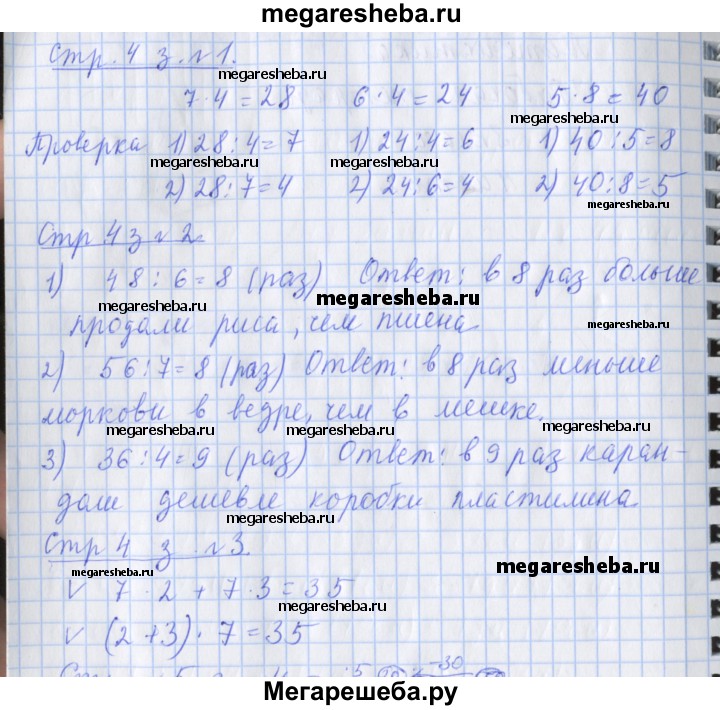 megaresheba.ru
Стр. 4 з. №1.
megaresheba.ru
7·4=28 6·4=24 5·8=40
megaresheba.ru
Проверка 1) 28:4=7 1) 24:4=6 1) 40:5=8
megaresheba.ru megaresheba.ru megaresheba.ru
2) 28:7=4 2) 24:6=4 2) 40:8=5
megaresheba.ru
Стр 4 з №2.
megaresheba.ru
1) 48:6=8 (раз) Ответ: в 8 раз больше
megaresheba.ru megaresheba.ru
продали риса, чем пшена
megaresheba.ru
2) 56:7=8 (раз) Ответ: в 8 раз меньше
моркови в ведре, чем в мешке.
megaresheba.ru megaresheba.ru megaresheba.ru
3) 36:4=9 (раз) Ответ: в 9 раз каран-
даш дешевле коробки пластилина
megaresheba.ru
Стр 4 з. №3.
megaresheba.ru megaresheba.ru
V 7·2+7·3=35
megaresheba.ru
V (2+3)·7=35
Мегарешеба.ру